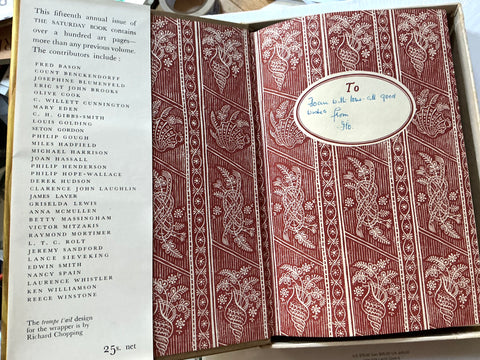 This fifteenth annual issue of
THE SATURDAY BOOK contains
over a hundred art pages—
more than any previous volume.
The contributors include :
FRED BASON
COUNT BENCKENDORFF
JOSEPHINE BLUMENFELD
ERIC ST JOHN BROOKS
OLIVE COOK
C. WILLETT CUNNINGTON
MARY EDEN
C. H. GIBBS-SMITH
LOUIS GOLDING
SETON GORDON
PHILIP GOUGH
MILES HADFIELD
MICHAEL HARRISON
JOAN HASSALL
PHILIP HENDERSON
PHILIP HOPE-WALLACE
DEREK HUDSON
CLARENCE JOHN LAUGHLIN
JAMES LAVER
GRISELDA LEWIS
ANNA MCMULLEN
BETTY MASSINGHAM
VICTOR MITZAKIS
RAYMOND MORTIMER
L. T. C. ROLT
JEREMY SANDFORD
LANCE SIEVEKING
EDWIN SMITH
NANCY SPAIN
LAURENCE WHISTLER
KEN WILLIAMSON
REECE WINSTONE
The trompe l'œil design
for the wrapper is by
Richard Chopping
25s. net
To
Joan with love. all good
wishes from